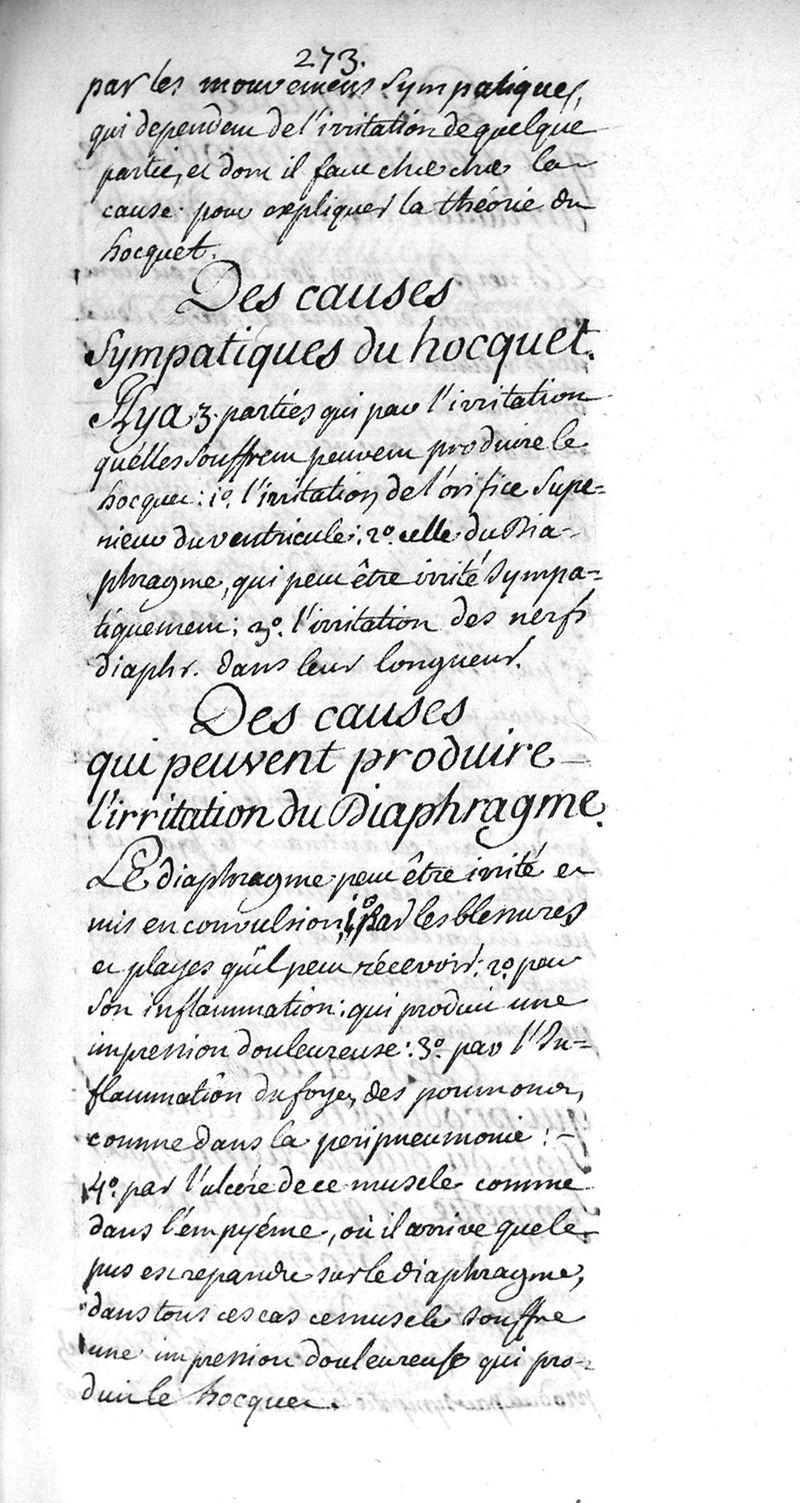 273.
par les mouvemens sympatiques,
qui dependent de l'irritation de quelque
partie, et dont il faut cherche la
cause pour expliquer la théorie du
hocquet.
Des causes
sympatiques du hocquet.
Il y a 3. parties qui par l'irritation
qu'elles souffrent peuvent produire le
hocquet: 1º. l'irritation de l'orifice supe=
rieur du ventricule: 2º. celle du Dia-
phragme, qui peut être irrité sympa=
tiquement: 3º. l'irritation des nerfs
diaphr. dans leur longueur.
Des causes
qui peuvent produire
l'irritation du Diaphragme.
Le diaphragme peut être irrité et
mis en convulsion, 1º par les blessures
et playes qu'il peut récevoir: 2º. par
son inflammation: qui produit une
impression douleureuse: 3º. par l'In=
flammation du foye, des poumons,
comme dans la peripneumonie: -
4º. par l'ulcére de ce muscle comme
dans l'empyéme, où il arrive que le
pus est repandu sur le diaphragme,
dans tous ces cas ce muscle souffre
une impression douleureuse qui pro-
duit le hocquet.